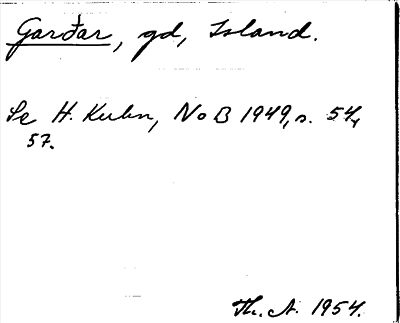 Garðar, gd, Island.
Se H. Kuhn, NoB 1949, s. 54,
57.
Th. A. 1954.